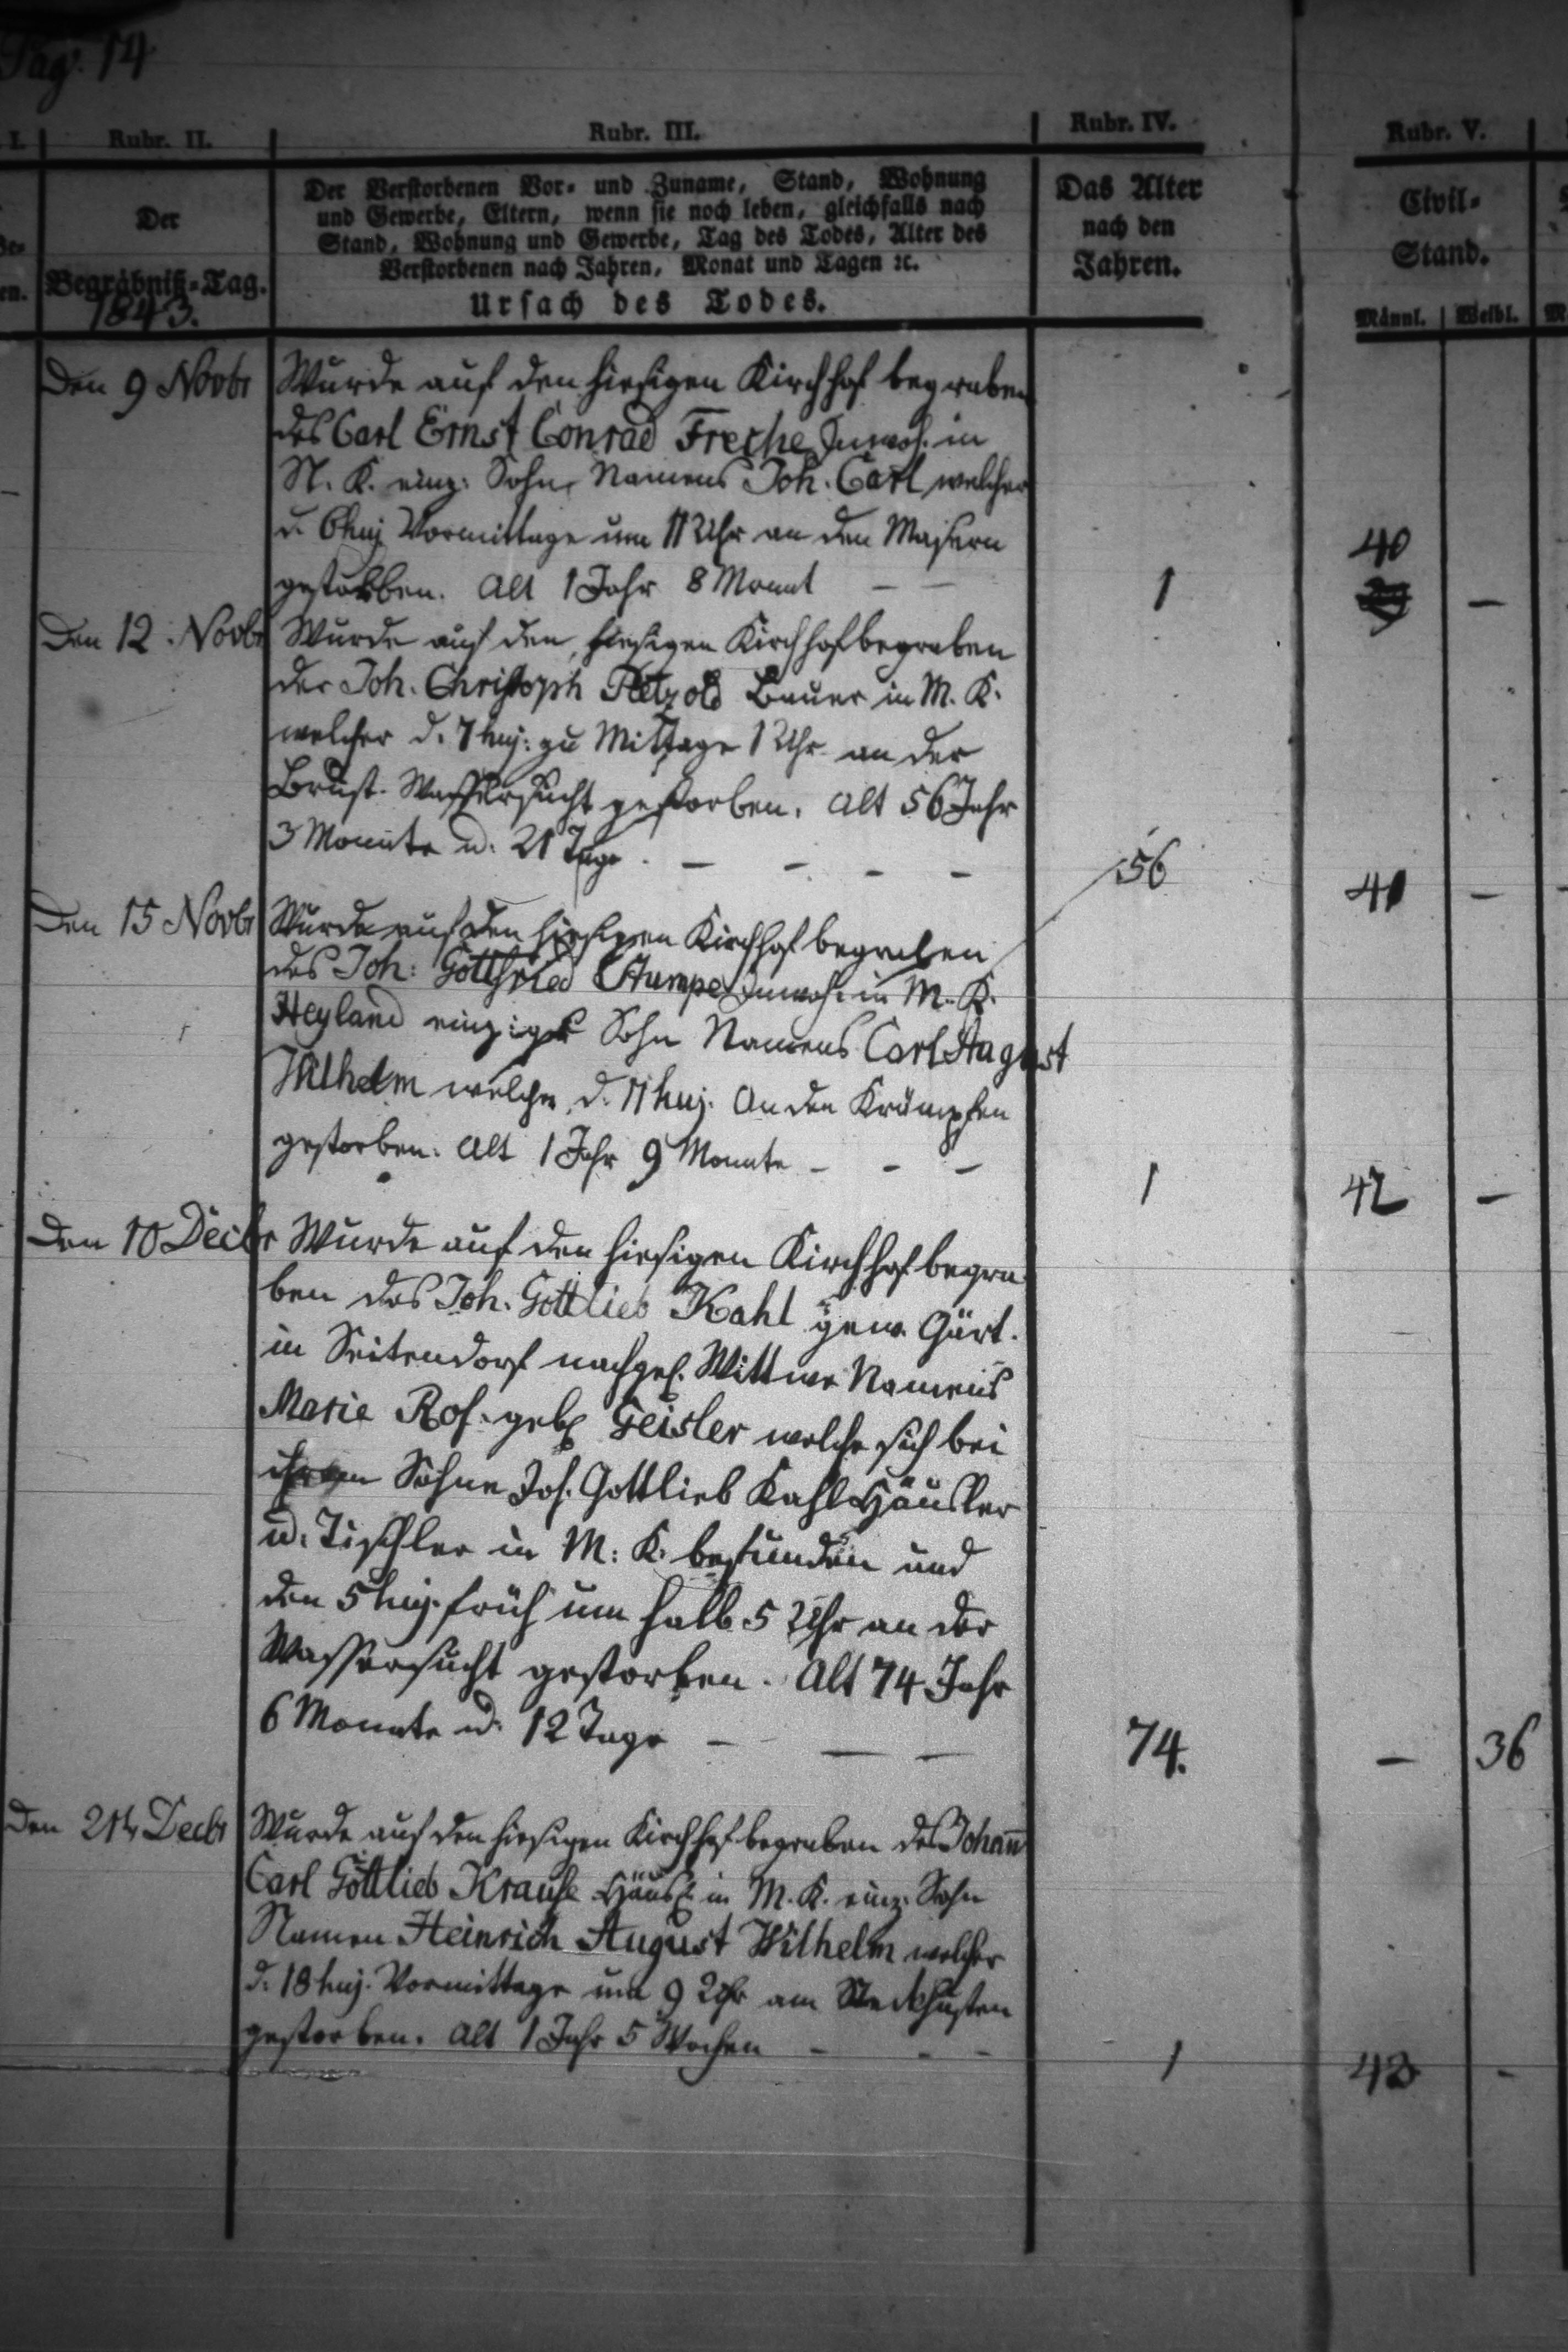 Pag. 14
I. Rubr. II. Rubr. III. Rubr. IV. Rubr. V.
Der Verstorbenen Vor- und Zuname, Stand, Wohnung
und Gewerbe, Eltern, wenn sie noch leben, gleichfalls nach
Stand, Wohnung und Gewerbe, Tag des Todes, Alter des
Verstorbenen nach Jahren, Monat und Tagen ꝛc.
Ursach des Todes.
Der
Begräbniß-Tag.
1843.
Das Alter
nach den
Jahren.
Civil-
Stand.
Männl. Weibl.
Den 9 Novbr Wurde auf den hiesigen Kirchhof begraben
des Carl Ernst Conrad Freche Inwoh. in
N. K. einz: Sohn, Namens Joh. Carl welcher
d. 6 huj Vormittage um 11 Uhr an den Masern 40
gestorben. Alt 1 Jahr 8 Monat — — 1 —
Den 12. Novbr Wurde auf den hiesigen Kirchhof begraben
der Joh. Christoph Petzold Bauer in M. K.
welcher d. 7 huj: zu Mittage 1 Uhr an der
Brust-Wassersucht gestorben. Alt 56 Jahr
3 Monate u. 21 Tage. — — — — 56 41 —
Den 15 Novbr Wurde auf den hiesigen Kirchhof begraben
des Joh: Gottfried Stumpe Inwoh. in M. K.
Heyland einziger Sohn Namens Carl August
Wilhelm welcher d. 11 huj. an den Krämpfen
gestorben. Alt 1 Jahr 9 Monate — — — 1 42 —
Den 10 Decbr Wurde auf den hiesigen Kirchhof begra
ben des Joh. Gottlieb Kahl gew. Gärt.
in Seitendorf nachgel. Wittwe Namens
Marie Ros. geb. Geisler welche sich bei
ihrem Sohne Joh. Gottlieb Kahl Häusler
u. Tischler in M: K. befunden und
den 5 huj. früh um halb 5 Uhr an der
Wassersucht gestorben. Alt 74 Jahr
6 Monate u. 12 Tage — — — 74. — 36
Den 21 Decbr Wurde auf den hiesigen Kirchhof begraben des Johann
Carl Gottlieb Krause Häusl. in M. K. einz. Sohn
Namen Heinrich August Wilhelm welcher
d. 18 huj. Vormittage um 9 Uhr am Steckhusten
gestorben. Alt 1 Jahr 5 Wochen — — — 1 43 -